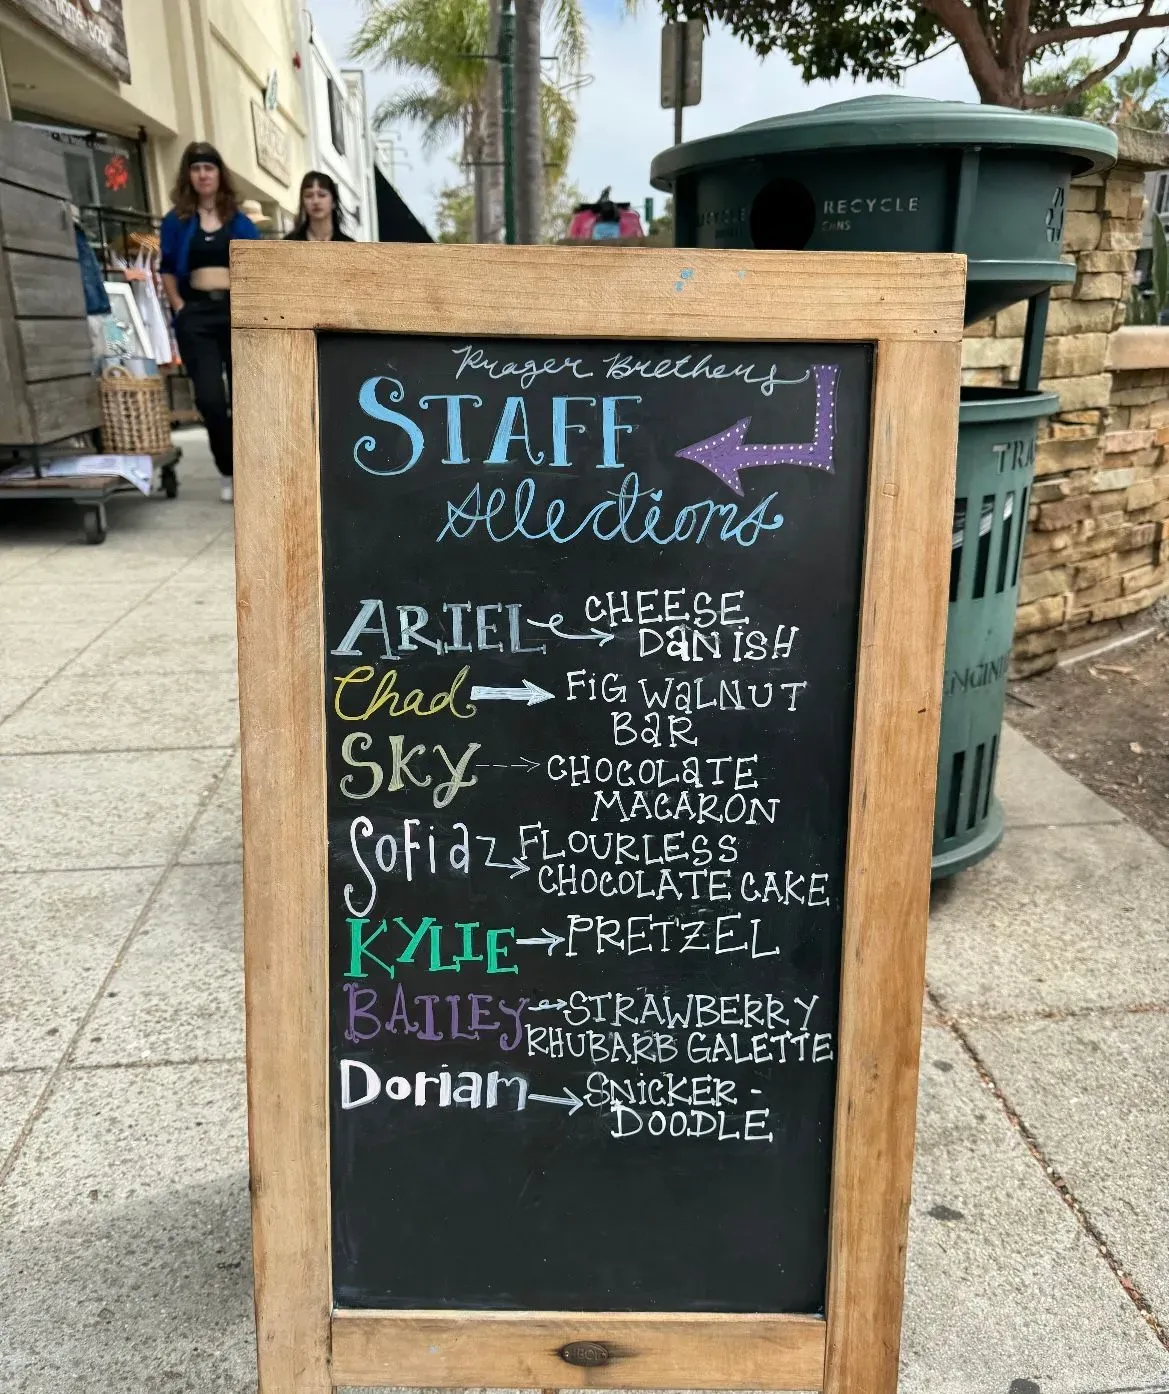 Prager Brothers
STAFF
selections
ARIEL CHEESE
DANISH
Chad FIG WALNUT
BAR
SKY CHOCOLATE
MACARON
SOFIA FLOURLESS
CHOCOLATE CAKE
KYLIE PRETZEL
BAILEY STRAWBERRY
RHUBARB GALETTE
Dorian SNICKER-
DOODLE
RECYCLE
CANS
TRA